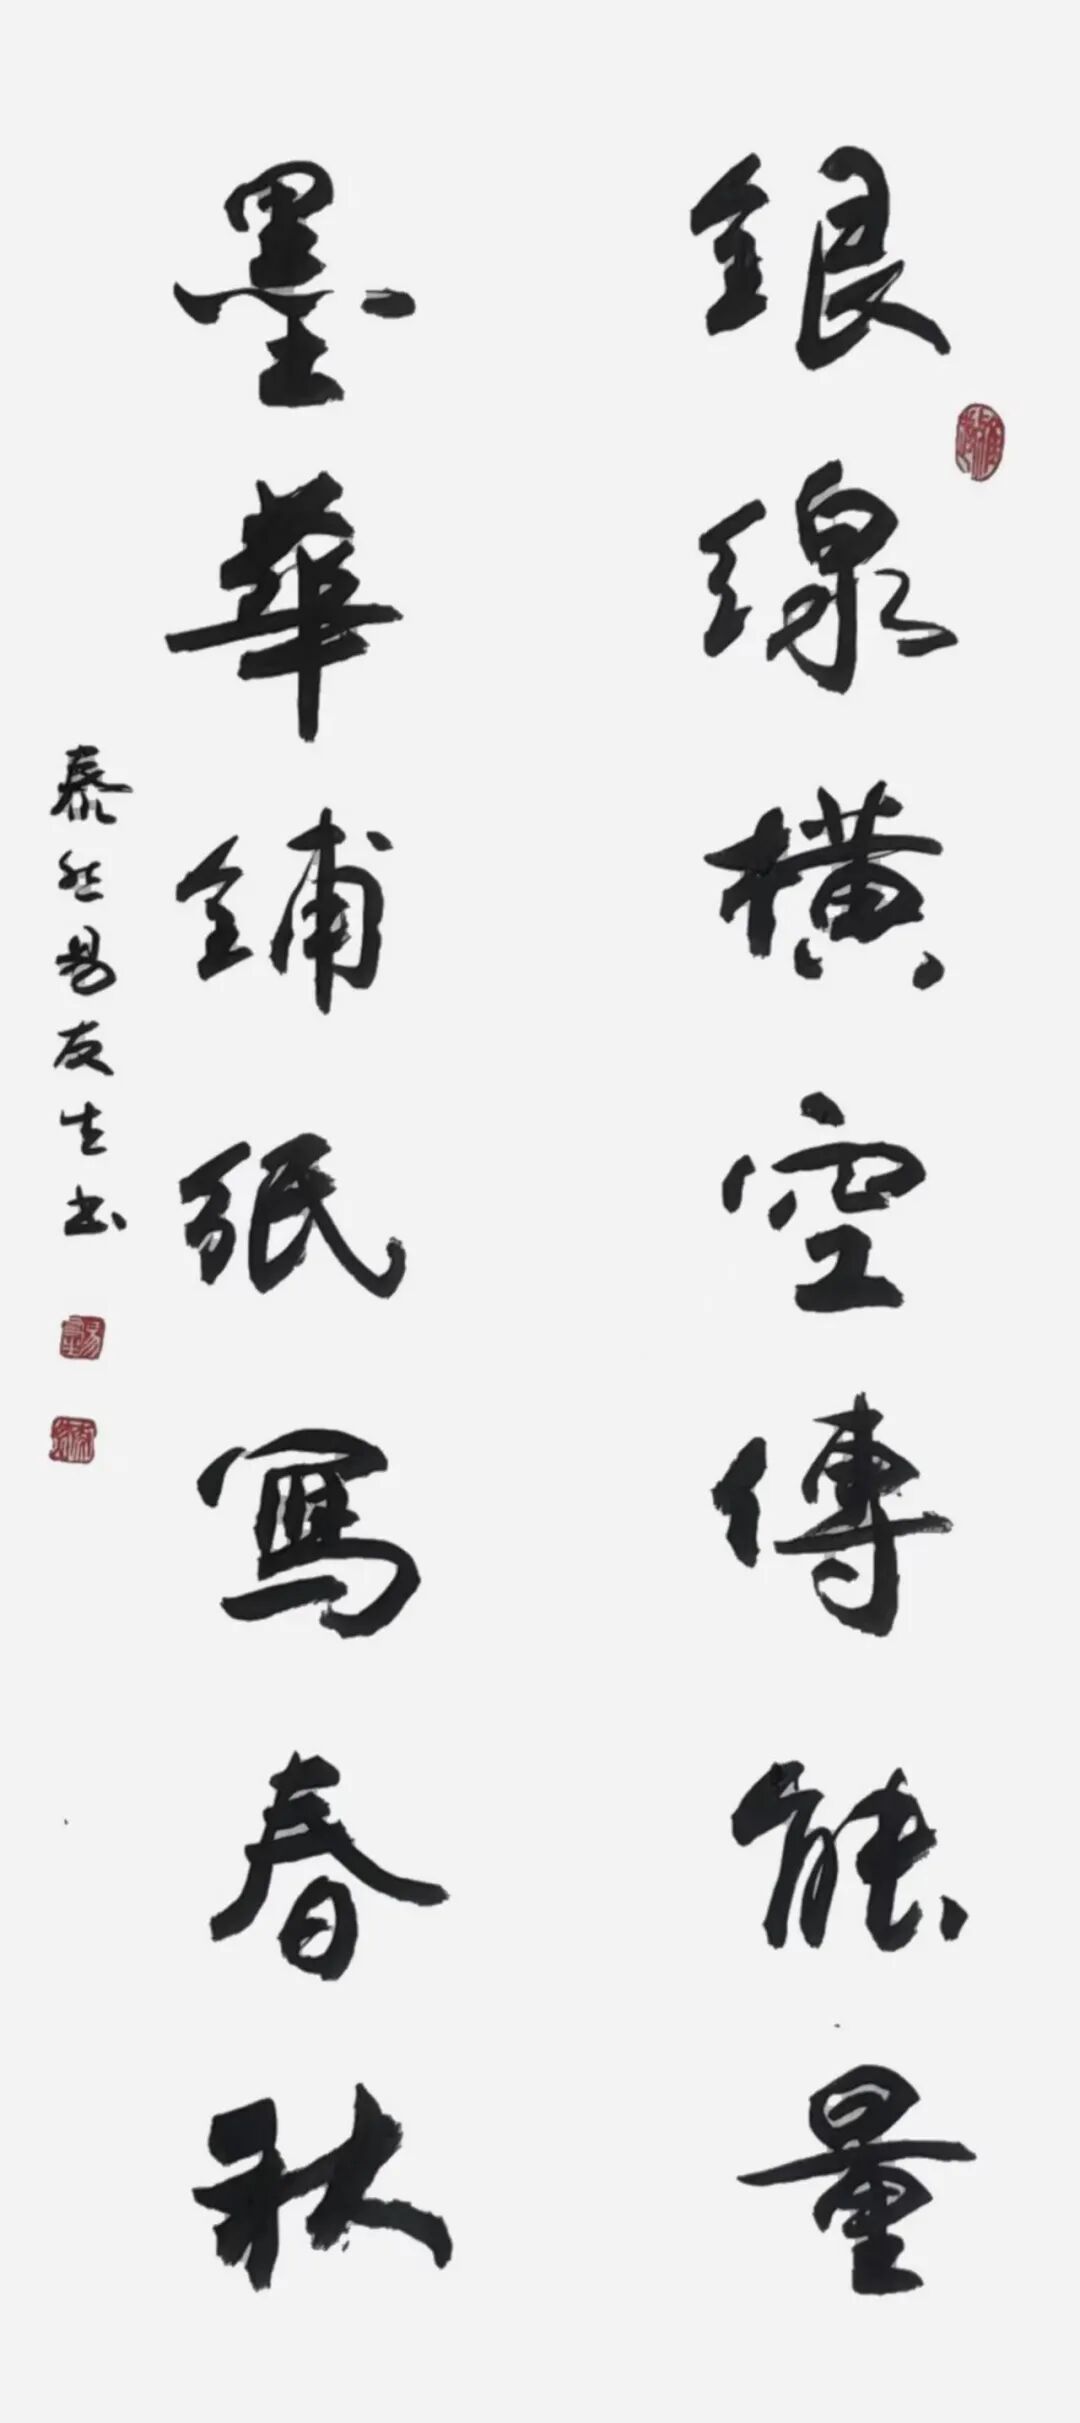 銀線橫空傳能量
墨華鋪紙寫春秋
泰然易友生书